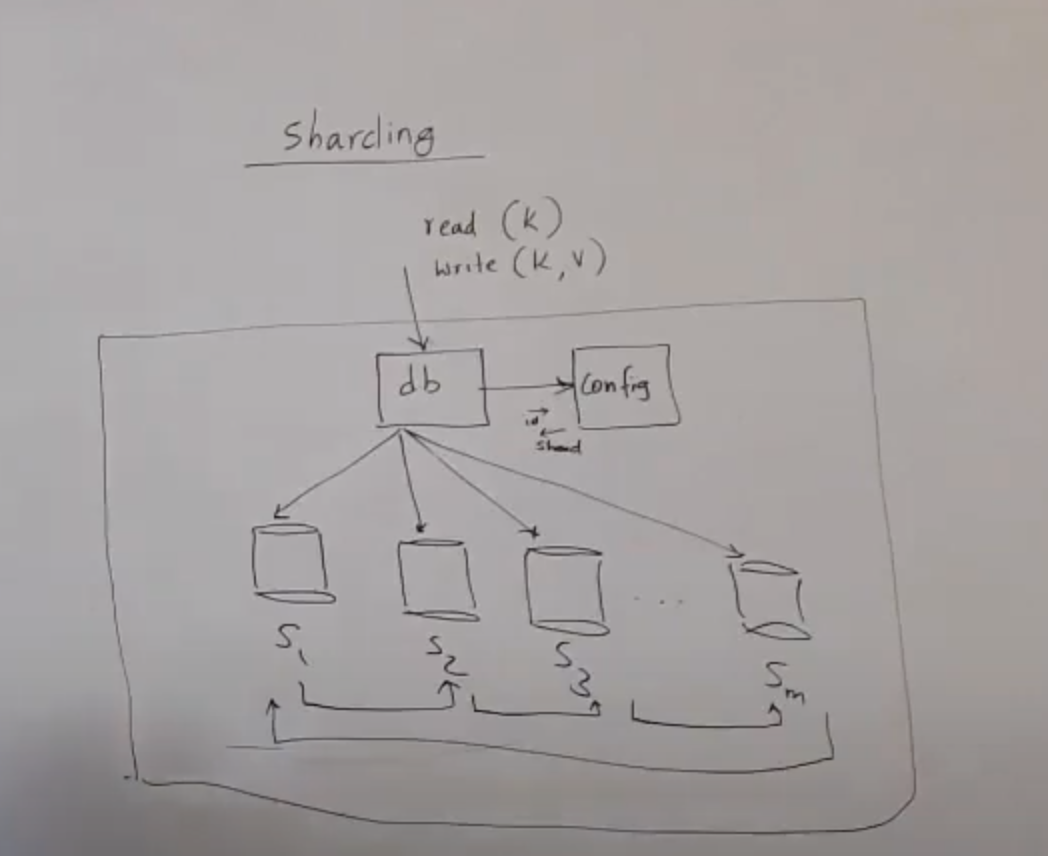 Sharding
read (K)
write (K, V)
db
Config
id
shard
S1
S2
S3
...
Sm